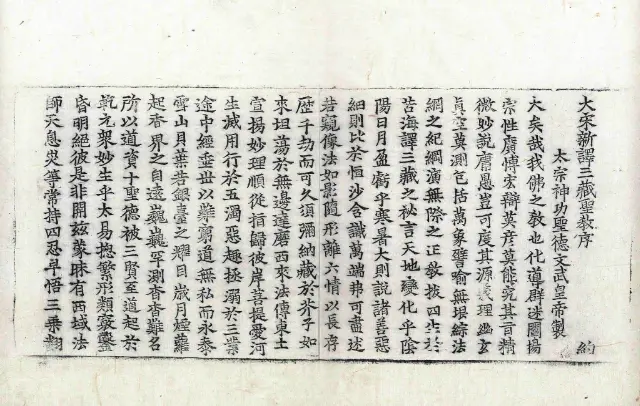 大宋新譯三藏聖教序
太宗神功聖德文武皇帝製 約
大矣哉我佛之教也化導群迷闡揚
宗性廣博宏辯英彦莫能究其旨精
微妙說庸愚豈可度其源義理幽玄
真空莫測包括萬象譬喻無垠綜法
網之紀綱演無際之正教拔四生於
苦海譯三藏之祕言天地變化乎陰
陽日月盈虧乎寒暑大則說諸善惡
細則比於恒沙含識萬端弗可盡述
若窺像法如影隨形離六情以長存
歷千劫而可久須彌納藏於芥子如
來坦蕩於無邊達磨西來法傳東土
宣揚妙理順從指歸彼岸菩提愛河
生滅用行於五濁惡趣拯溺於三業
途中經垂世以難窮道無私而永泰
雪山貝葉若銀臺之耀目歲月煙蘿
起香界之自遠巍巍罕測杳杳難名
所以道資十聖德被三賢至道起於
乾元衆妙生乎太易揔繁形類竅鑿
昏明絕彼是非開兹蒙昧有西域法
師天息災等常持四忍早悟三乘翻